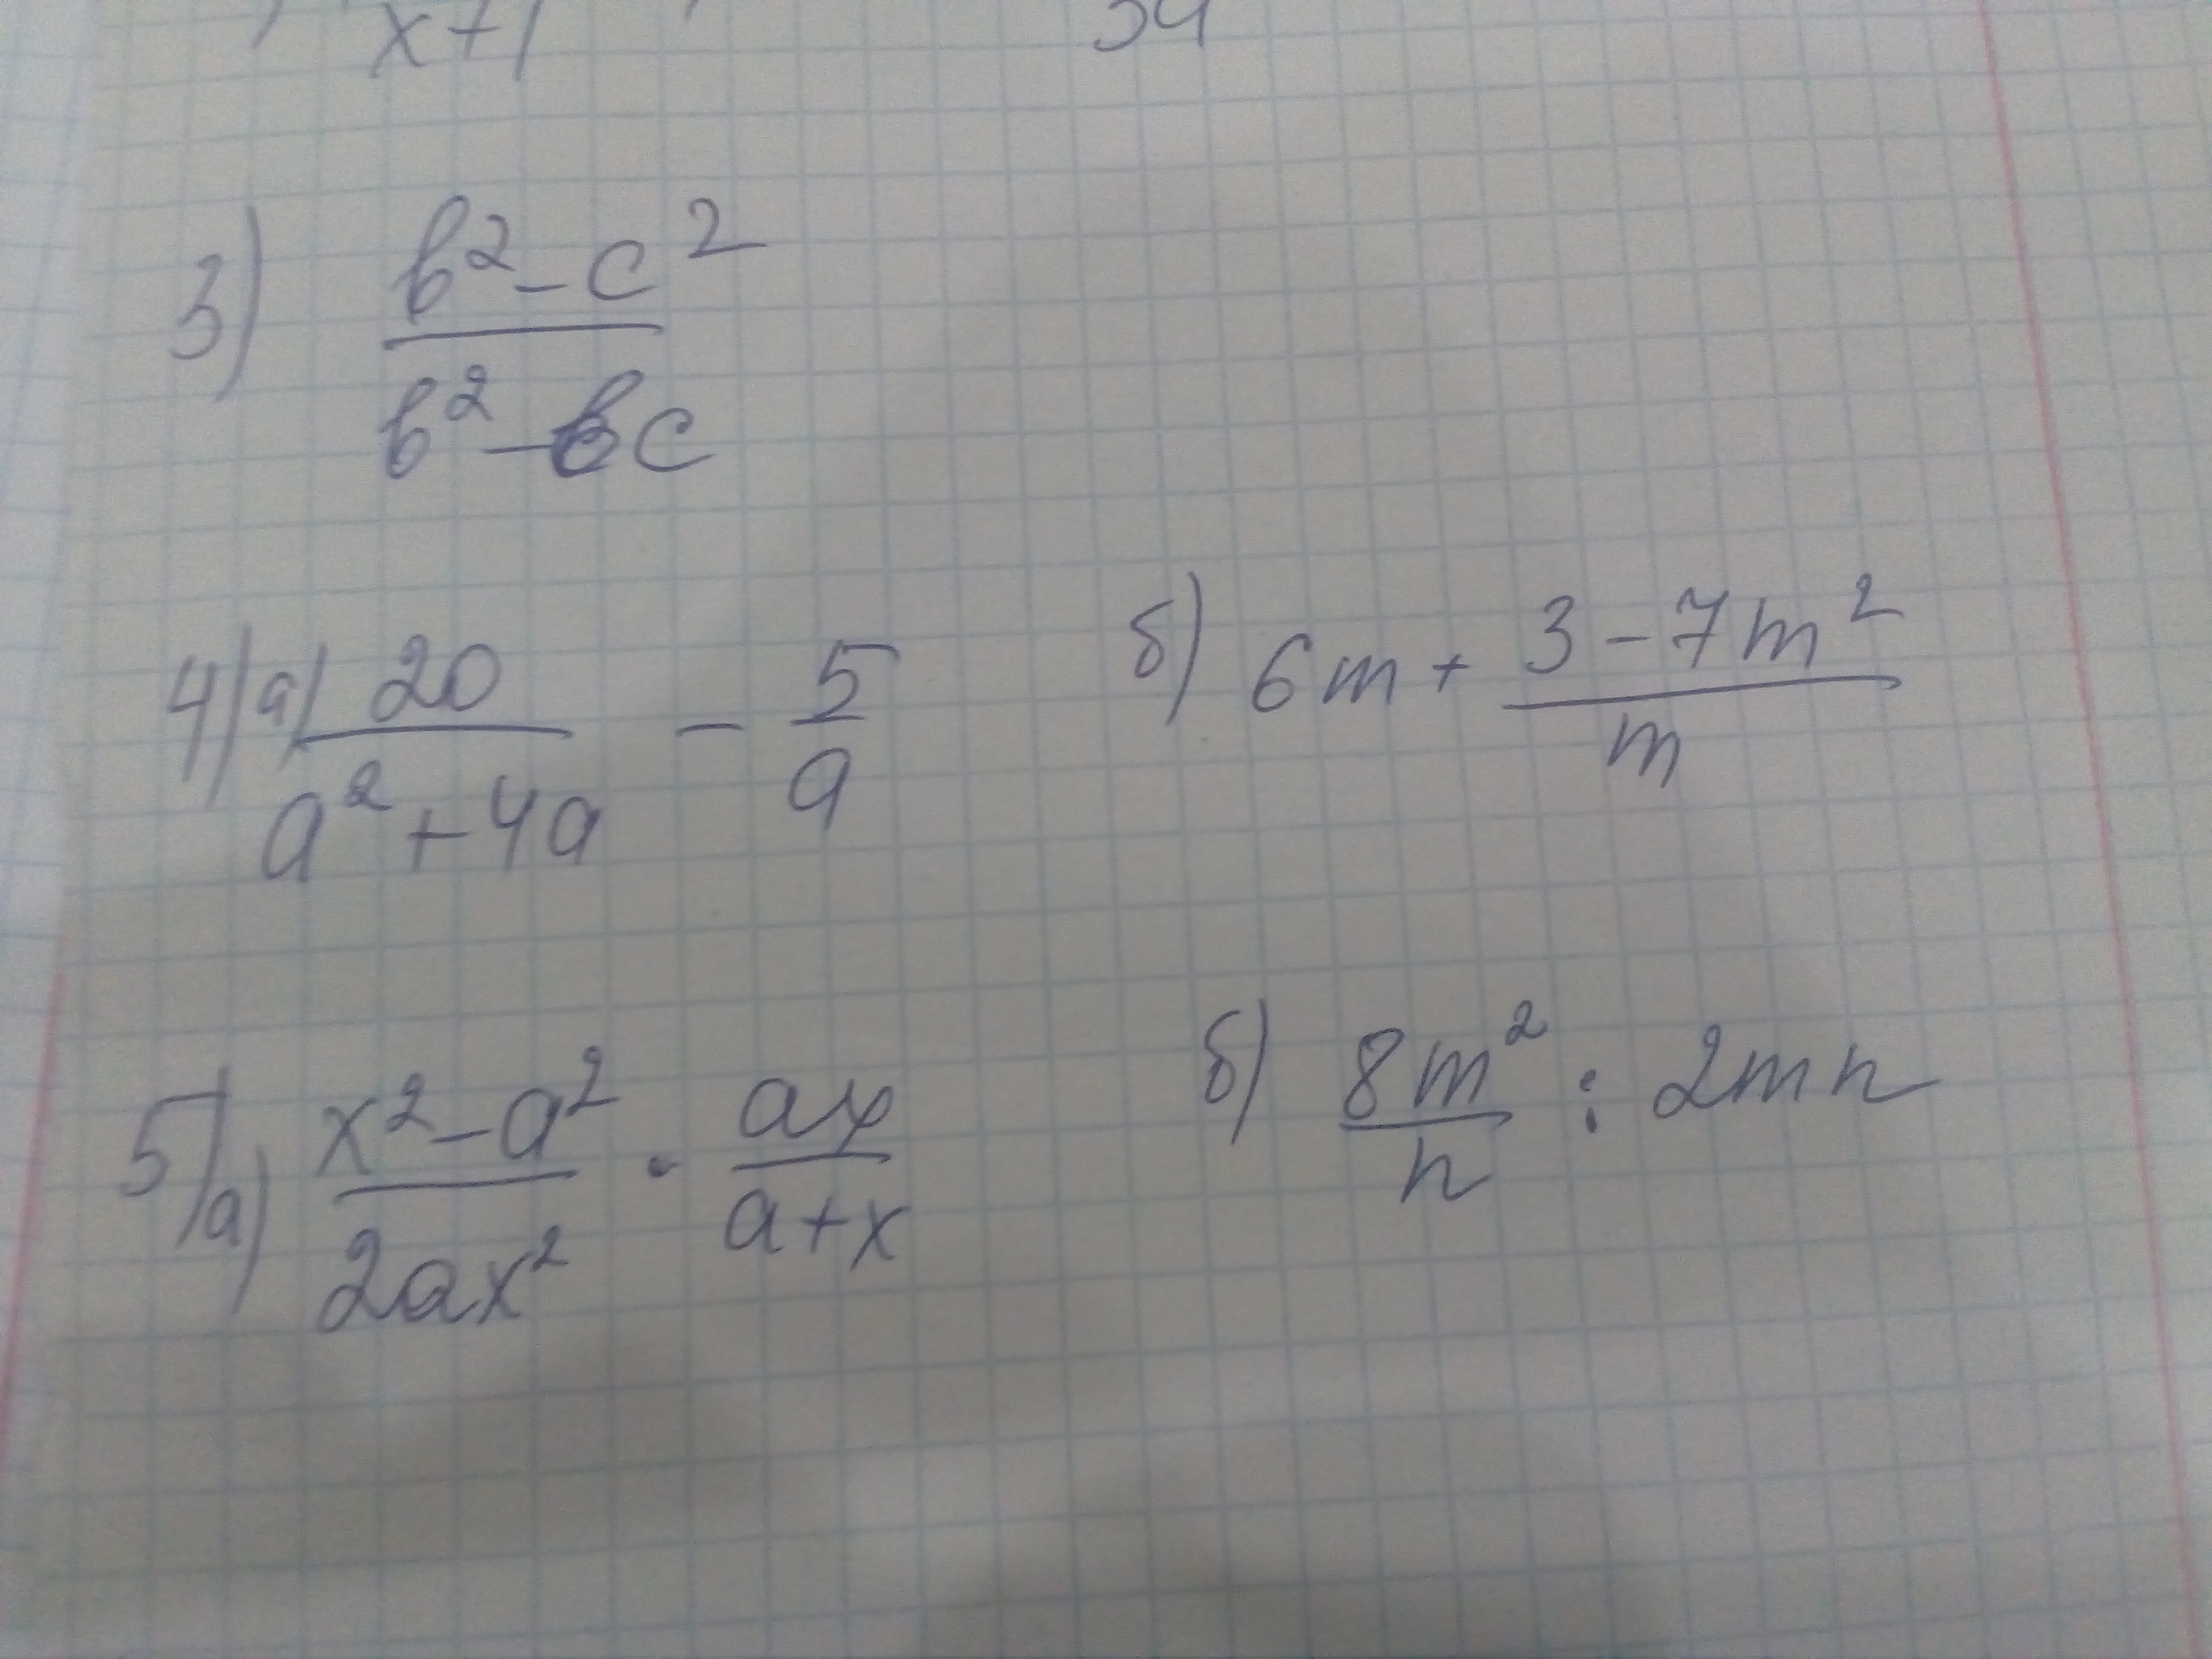 x+1
3) (b² - c²) / (b² - bc)
4) а) 20 / (a² + 4a) - 5/a б) 6m + (3 - 7m²) / m
5) а) (x² - a²) / (2ax²) · ax / (a+x) б) 8m² / n : 2mn